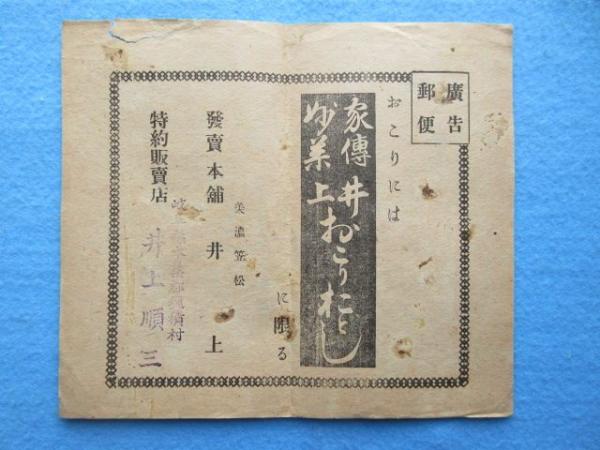 廣告
郵便
おこりには
家傳
妙薬
井上おこりおとし
に限る
美濃笠松
發賣本舗 井上
特約販賣店
村
井上順三